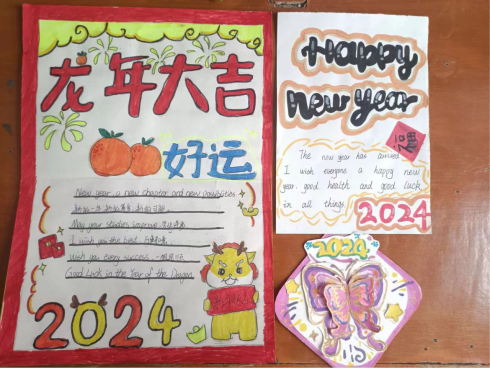 龙年大吉
好运
New year, a new chapter and new possibilities
May your studies improve
I wish you the best
Wish you every success
Good Luck in the Year of the Dragon
2024
Happy
New Year
福
The new year has arrived
I wish everyone a happy new
year good health and good luck
in all things
2024
2024